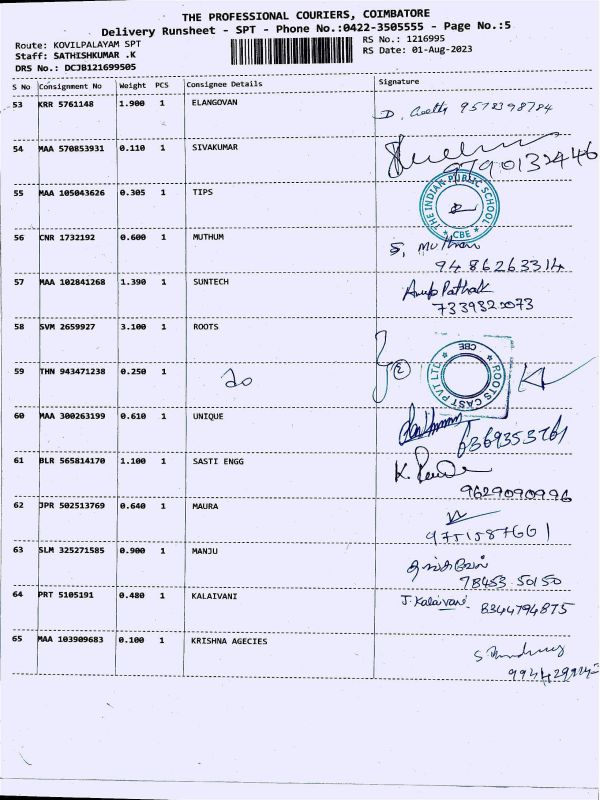 THE PROFESSIONAL COURIERS, COIMBATORE
Delivery Runsheet - SPT - Phone No.:0422-3505555 - Page No.:5
Route: KOVILPALAYAM SPT
RS No.: 1216995
Staff: SATHISHKUMAR .K
RS Date: 01-Aug-2023
DRS No.: DCJB121699505
S No Consignment No Weight PCS Consignee Details Signature
53 KRR 5761148 1.900 1 ELANGOVAN
D. Geetha 9578398784
54 MAA 570853931 0.110 1 SIVAKUMAR
9790132446
55 MAA 105043626 0.305 1 TIPS
THE INDIAN PUBLIC SCHOOL
* CBE *
56 CNR 1732192 0.600 1 MUTHUM
9486263314
57 MAA 102841268 1.390 1 SUNTECH
Anup Pathak
7339320073
58 SVM 2659927 3.100 1 ROOTS
59 THN 943471238 0.250 1 do
2
ROOTS CAST PVT LTD
* CBE *
60 MAA 300263199 0.610 1 UNIQUE
6369353761
61 BLR 565814170 1.100 1 SASTI ENGG
9629090996
62 JPR 502513769 0.640 1 MAURA
9751587661
63 SLM 325271585 0.900 1 MANJU
78453 50150
64 PRT 5105191 0.480 1 KALAIVANI
J. Kalaivani 8344794875
65 MAA 103909683 0.100 1 KRISHNA AGECIES